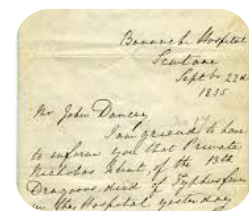 Barrack Hospital
Scutari
Sept br 22d
1855
Mr John Dancey
I am grieved to have
to inform you that Private
Nicholas of the 13th
Dragoons died of Typhus fever
in the Hospital yesterday